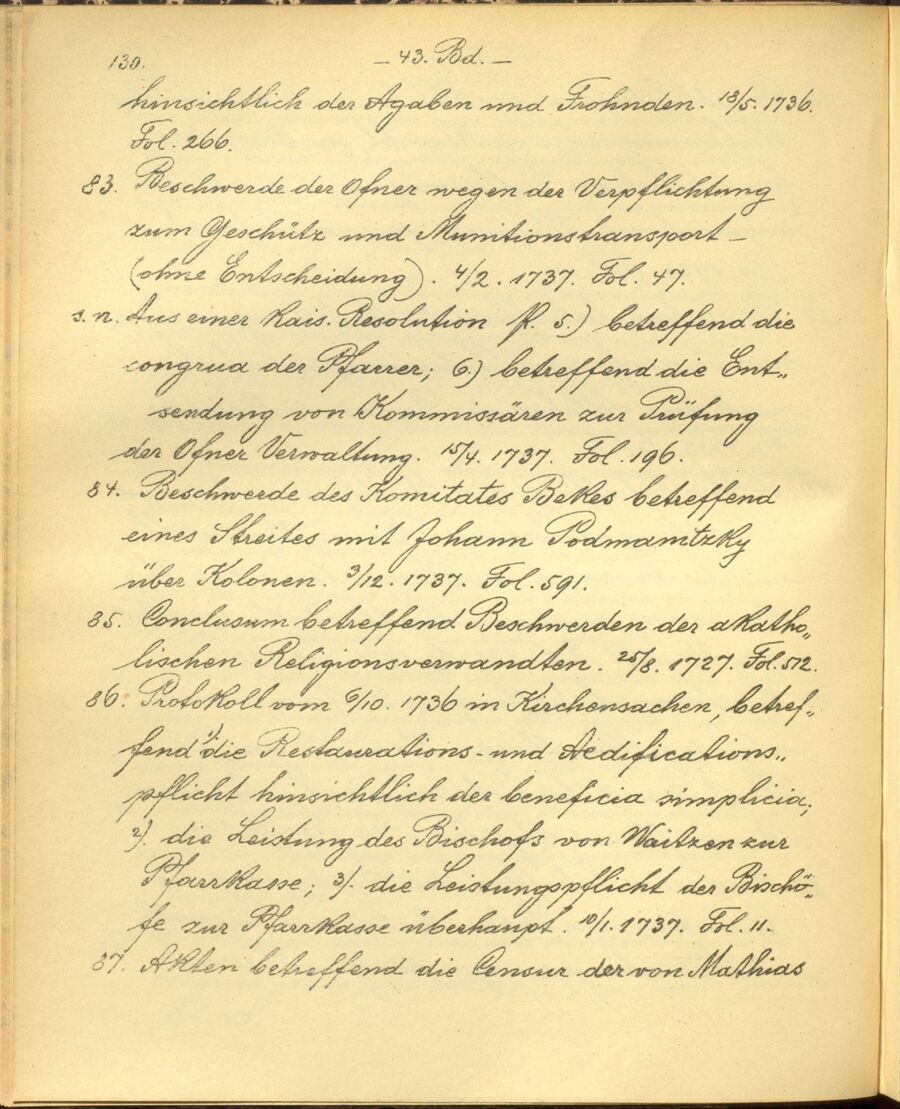 130.
— 43. Bd. —
hinsichtlich der Agaben und Frohnden. 18/5. 1736.
Fol. 266.
83. Beschwerde der Ofner wegen der Verpflichtung
zum Geschütz und Munitionstransport —
(ohne Entscheidung). 4/2. 1737. Fol. 47.
s. n. Aus einer Kais. Resolution P. 5.) betreffend die
congrua der Pfarrer; 6.) betreffend die Ent„
sendung von Kommissären zur Prüfung
der Ofner Verwaltung. 15/4. 1737. Fol. 196.
84. Beschwerde des Komitates Bekes betreffend
eines Streites mit Johann Podmanitzky
über Kolonen. 3/12. 1737. Fol. 591.
85. Conclusum betreffend Beschwerden der akatho„
lischen Religionsverwandten. 25/8. 1727. Fol. 512.
86. Protokoll vom 6/10. 1736 in Kirchensachen, betref„
fend 1) die Restaurations- und Aedifications„
pflicht hinsichtlich der beneficia simplicia;
2). die Leistung des Bischofs von Waitzen zur
Pfarrkasse; 3). die Leistungspflicht der Bischö„
fe zur Pfarrkasse überhaupt. 10/1. 1737. Fol. 11.
87. Akten betreffend die Censur der von Mathias